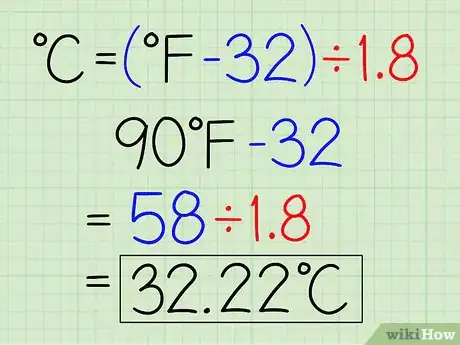 °C = (°F - 32) ÷ 1.8
90°F - 32
= 58 ÷ 1.8
= 32.22°C
wikiHow